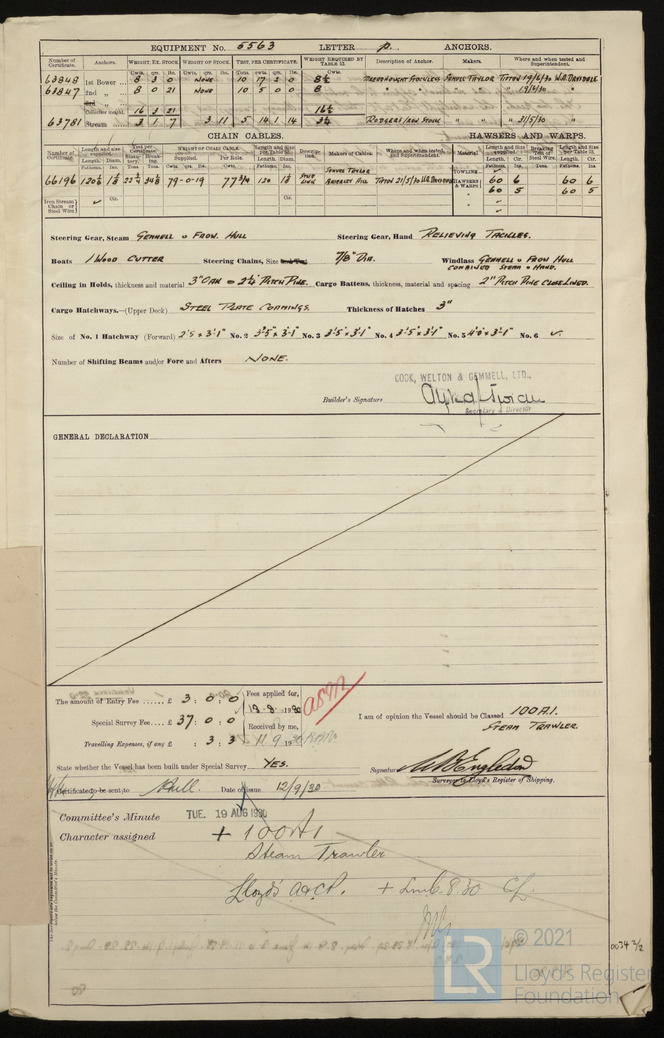 EQUIPMENT No. 5563 LETTER p. ANCHORS.
Number of Certificate. Anchors. WEIGHT, EX. STOCK. WEIGHT OF STOCK. TEST, PER CERTIFICATE. WEIGHT REQUIRED BY TABLE 53. Description of Anchor. Makers. Where and when tested and Superintendent.
Cwts. qrs. lbs. Cwts. qrs. lbs. Tons. cwts. qrs. lbs. Cwts.
63848 1st Bower 8 3 0 NONE 10 17 2 0 8½ DREADNOUGHT STOCKLESS SAMUEL TAYLOR TIPTON 19/6/30 W.A. DRYSDALE
63847 2nd „ 8 0 21 NONE 10 5 0 0 8 " " " 19/6/30 "
3rd „
Collective weight. 16 3 21 16½
63781 Stream 3 1 7 3 11 5 14 1 14 3¼ RODGERS/IRON STOCK " " " 31/5/30 "
CHAIN CABLES. HAWSERS AND WARPS.
Number of Certificate. Length and size supplied. Test per Certificate. WEIGHT OF CHAIN CABLE. Length and size per Table 53. Description. Makers of Cables. Where and when tested, and Superintendent. Material. Length and size supplied. Breaking Test of Steel Wire. Length and size per Table 53.
Length. Diam. Statutory. Breaking. Supplied. Per Rule. Length. Diam. Length. Cir. Length. Cir.
Fathoms. Ins. Tons. Tons. Cwts. qrs. lbs. Cwts. Fathoms. Ins. Fathoms. Ins. Tons. Fathoms. Ins.
66196 120½ 1⅛ 22¾ 34⅛ 79-0-19 77¾ 120 1⅛ STUD LINK SAMUEL TAYLOR BRIERLEY HILL TIPTON 21/5/30 W.A. DRYSDALE
TOWLINE ✓
HAWSERS & WARPS 60 6 60 6
60 5 60 5
Iron Stream Chain or Steel Wire ✓ Cir. Cir.
Steering Gear, Steam GEMMELL & FROW. HULL Steering Gear, Hand RELIEVING TACKLES.
Boats 1 WOOD CUTTER Steering Chains, Size 7/8" DIA. Windlass GEMMELL & FROW HULL
COMBINED STEAM & HAND.
Ceiling in Holds, thickness and material 3" OAK & 2½" PITCH PINE. Cargo Battens, thickness, material and spacing 2" PITCH PINE CLOSE LINED.
Cargo Hatchways.—(Upper Deck) STEEL PLATE COAMINGS. Thickness of Hatches 3"
Size of No. 1 Hatchway (Forward) 2'5 × 3'1" No. 2 3'5" × 3'1" No. 3 3'5" × 3'1" No. 4 3'5" × 3'1" No. 5 4'0" × 3'1" No. 6 ✓
Number of Shifting Beams and/or Fore and Afters NONE.
COOK, WELTON & GEMMELL, LTD.,
Builder's Signature
Secretary & Director
GENERAL DECLARATION
The amount of Entry Fee £ 3 : 0 : 0 Fees applied for,
19 . 8 . 1930
Special Survey Fee £ 37 : 0 : 0 Received by me,
Travelling Expenses, if any £ : 3 : 3 11 9 1930
I am of opinion the Vessel should be Classed 100A1.
STEAM TRAWLER.
State whether the Vessel has been built under Special Survey YES.
Signature
Surveyor to Lloyd's Register of Shipping.
Certificate to be sent to Hull. Date of issue 12/9/30
Committee's Minute TUE. 19 AUG 1930
Character assigned + 100A1
Steam Trawler
Lloyd's A&CP. + LMC 8.30 CL.
0034 2/2
© 2021
LR
Lloyd's Register
Foundation